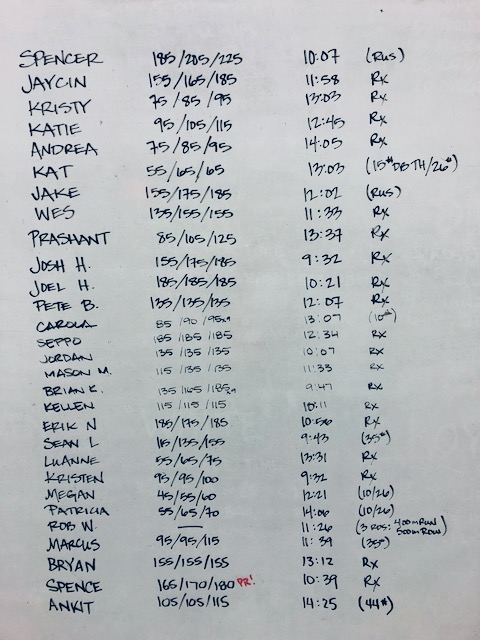 SPENCER 185/205/225 10:07 (RUS)
JAYCIN 155/165/185 11:58 Rx
KRISTY 75/85/95 13:03 Rx
KATIE 95/105/115 12:45 Rx
ANDREA 75/85/95 14:05 Rx
KAT 55/65/65 13:03 (15# DB TH/26#)
JAKE 155/175/185 12:02 (RUS)
WES 135/155/155 11:33 Rx
PRASHANT 85/105/125 13:37 Rx
JOSH H. 155/175/185 9:32 Rx
JOEL H. 185/185/185 10:21 Rx
PETE B. 135/135/135 12:07 Rx
CAROLA 85/90/95 13:07 (10#)
SEPPO 185/185/185 12:34 Rx
JORDAN 135/135/135 10:07 Rx
MASON M. 115/135/135 11:33 Rx
BRIAN K. 135/165/185 9:47 Rx
KELLEN 115/115/115 10:11 Rx
ERIK N 185/175/185 10:56 Rx
SEAN L 115/135/155 9:43 (35#)
LUANNE 55/65/75 13:31 Rx
KRISTEN 95/95/100 9:32 Rx
MEGAN 45/55/60 12:21 (10/26)
PATRICIA 55/65/70 14:06 (10/26)
ROB W. — 11:26 (3 RDS: 400m RUN 500m ROW)
MARCUS 95/95/115 11:39 (35#)
BRYAN 155/155/155 13:12 Rx
SPENCE 165/170/180 PR! 10:39 Rx
ANKIT 105/105/115 14:25 (44#)